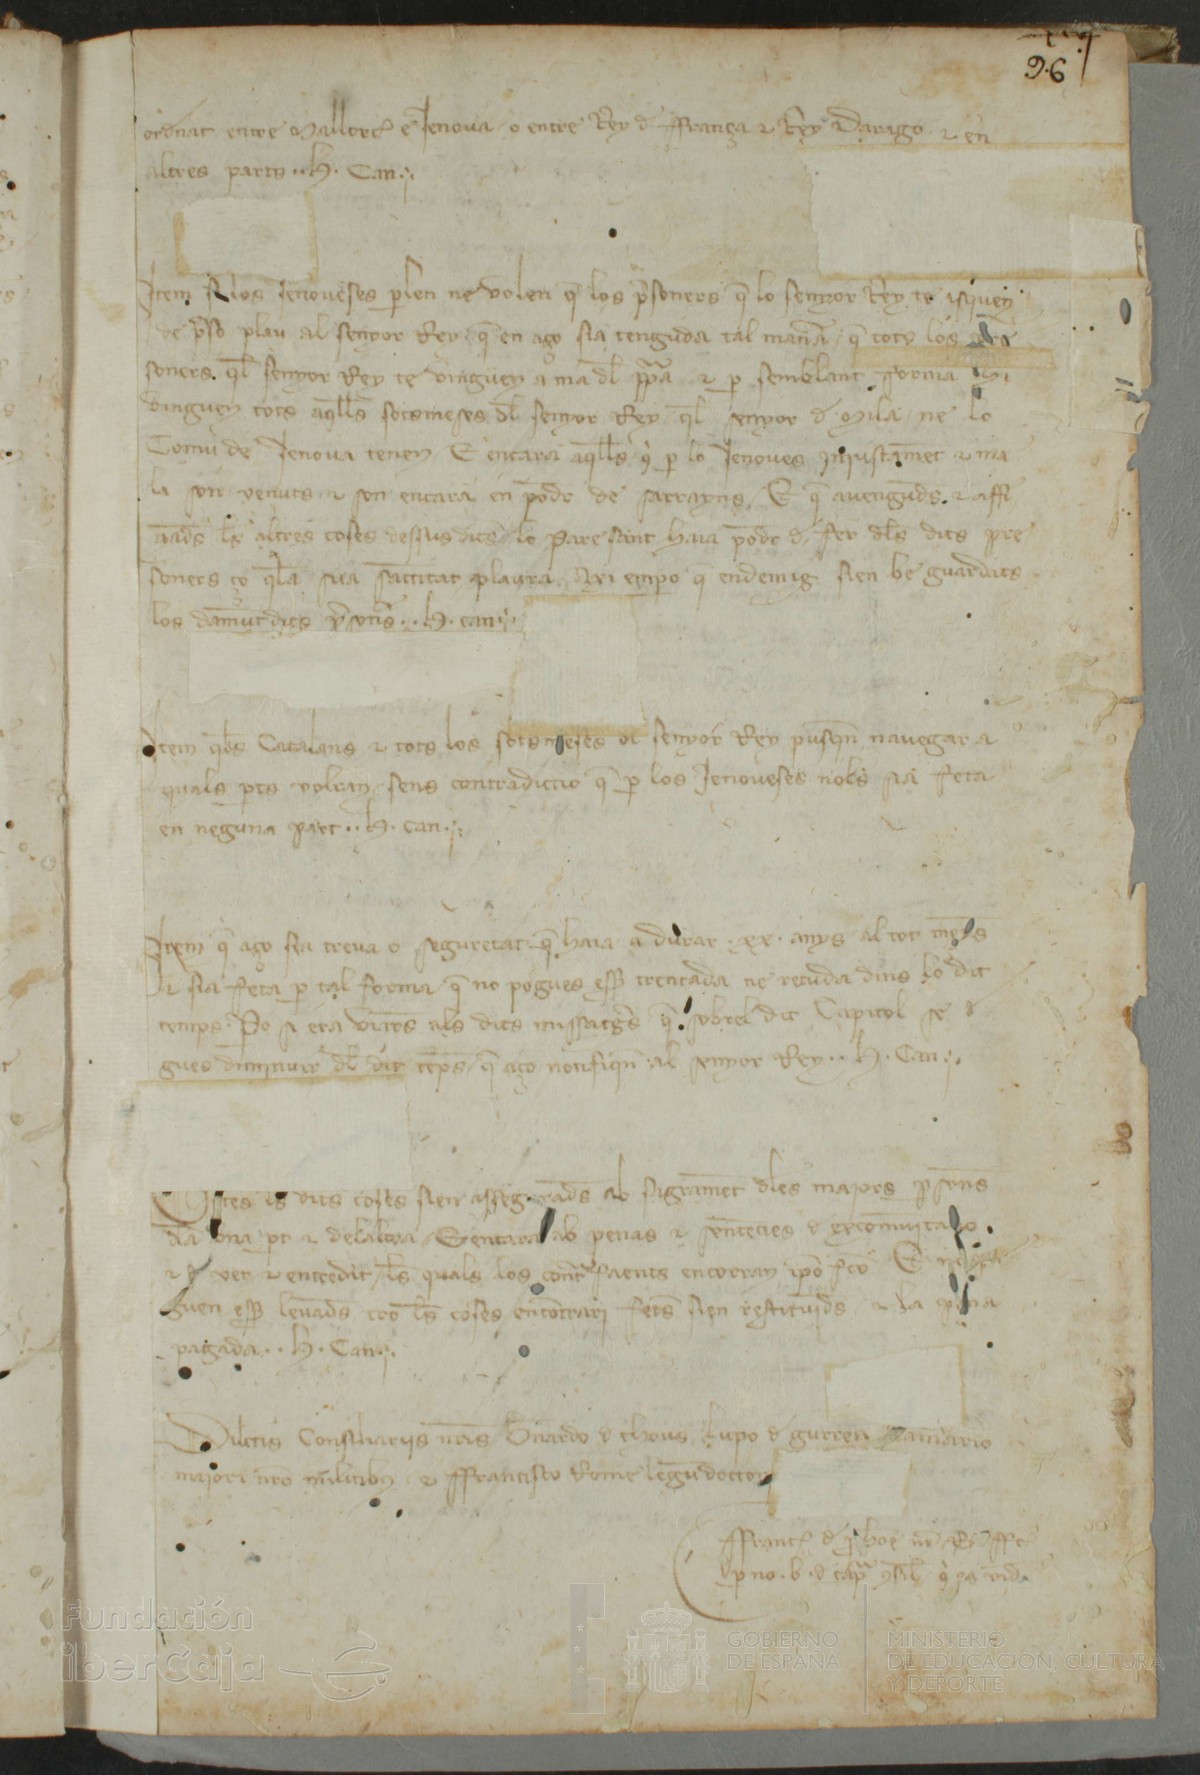 96
ordnat entre Mallorcȝ e Jenova o entre Rey d ffrança ⁊ Rey Darago ⁊ en
altres parts ·· h · Can ·
Item si los Jenoveses ꝑlen ne volen q̄ los p̄soners q̄ lo senyor Rey te isquen
de p̄so plau al senyor Rey q̄ en aço sia tenguda tal man̄a q̄ tots los
soners ql̄ senyor Rey te vinguen a ma dl̄ pp̄a ⁊ ꝑ semblant forma hi
vinguen tots aqll̄s sotsmeses dl̄ senyor Rey ql̄ senyor d Mila ne lo
Comu de Jenova tenen E encara aqll̄s q̄ ꝑ lo Jenoves injustam̄et ⁊ ma
la son venuts ⁊ son encara en pod̄r de sarrayns E q̄ avenguds ⁊ affi
nads ls altres coses dessus dites lo Pare sant haia pod̄r d fer dls dits pre
soners ço q̄ la sua s̄actitat plaura Axi empo q̄ endemig sien be guardats
los dam̄ut dits
h · can ·
Item q̄ls Catalans ⁊ tots los sotsmeses dl senyor Rey pusq̄n navegar a
quals ꝑts volran sens contradiccio q̄ ꝑ los Jenoveses nols sia feta
en neguna part ·· h · can ·
Item q̄ aço sia treva o seguretat q̄ haia a durar · xx · anys al tot meyns
⁊ sia feta ꝑ tal forma q̄ no pogues ess̄ trencada ne retuda dins lo dit
temps · Po si era vist als dits missatgs̄ q̄ sobrel dit Capitol se d
gues diminuir dl̄ dit temps q̄ aço notifiqn̄ al senyor Rey ·· h · Can ·
les dits coses sien assegurads ab sagram̄et dles majors ꝑson̄s
da una pt ⁊ delaltra E encara ab penas ⁊ sentēcies d excomunicacio
⁊ d vet ⁊ entredit ls quals los cont̄ faents encorran ip̄o fc̄o E no
guen ess̄ levads tro ls coses encontrari fets̄ sien restituids ⁊ la pena
pagada ·· h · Can ·
Dilectis Consiliariis nr̄is B̄nardo d thous Lupo d gurrea Camario
majori nr̄o militibȝ ⁊ ffrancisco Rome legū doctor
Fundación
iberCaja
GOBIERNO
DE ESPAÑA
MINISTERIO
DE EDUCACIÓN, CULTURA
Y DEPORTE